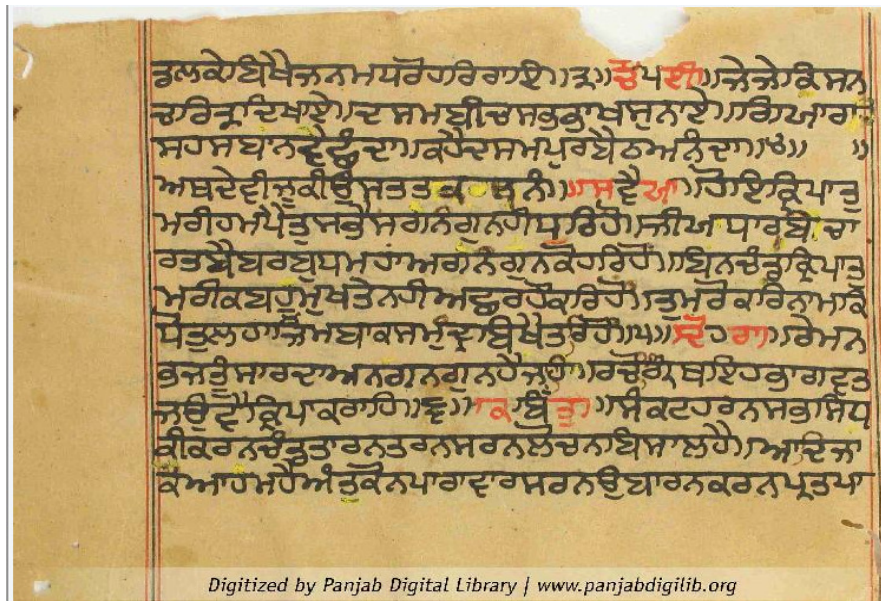 ਕੁਲਕੇਬਿਖੈਜਨਮਧਰੋਹਰਿਰਾਇ॥੩॥ਚੌਪਈ॥ਜੇਜੇਕਿਸਨ
ਚਰਿਤ੍ਰਦਿਖਾਏ॥ਦਸਮਬੀਚਸਭਭਾਖਸੁਨਾਏ॥ਗਿਯਾਰਾ
ਸਹਸਬਾਨਵੇਛੰਦਾ॥ਕਹੈਦਸਮਪੁਰਬੈਠਅਨੰਦਾ॥੪॥ ॥
ਅਥਦੇਵੀਜੂਕੀਉਸਤਤਕਥਨੰ॥ਸਵੈਯਾ॥ਹੋਇਕ੍ਰਿਪਾਤੁ
ਮਰੀਹਮਪੈਤੁਸਭੈਸਗਨੰਗੁਨਹੀਧਰਿਹੋ॥ਜੀਯਧਾਰਬੀਚਾ
ਰਤਬੈਬਰਬੁਧਮਹਾਂਅਗਨੰਗੁਨਕੋਹਰਿਹੋ॥ਬਿਨਚੰਡਕ੍ਰਿਪਾਤੁ
ਮਰੀਕਬਹੂਮੁਖਤੇਨਹੀਅਛਰਹੌਕਰਿਹੋ॥ਤੁਮਰੋਕਰਿਨਾਮਕਿ
ਧੋਤੁਲਹਾਜਿਮਬਾਕਸਮੁੰਦ੍ਰਬਿਖੈਤਰਿਹੋ॥੫॥ਦੋਹਰਾ॥ਰੇਮਨ
ਭਜਤੂੰਸਾਰਦਾਅਨਗਨਗੁਨਹੈਜਾਹਿ॥ਰਚੌਗ੍ਰੰਥਇਹਭਾਗਵਤ
ਜਉਵੈਕ੍ਰਿਪਾਕਰਾਹਿ॥੬॥ਕਬਿਤੁ॥ਸੰਕਟਹਰਨਸਭਸਿਧ
ਕੀਕਰਨਚੰਡਤਾਰਨਤਰਨਸਰਨਲੋਚਨਾਬਿਸਾਲਹੈ॥ਆਦਿਜਾ
ਕੇਆਹਮਹੈਅੰਤਕੋਨਪਾਰਾਵਾਰਸਰਨਉਬਾਰਨਕਰਨਪ੍ਰਤਪਾ
Digitized by Panjab Digital Library | www.panjabdigilib.org